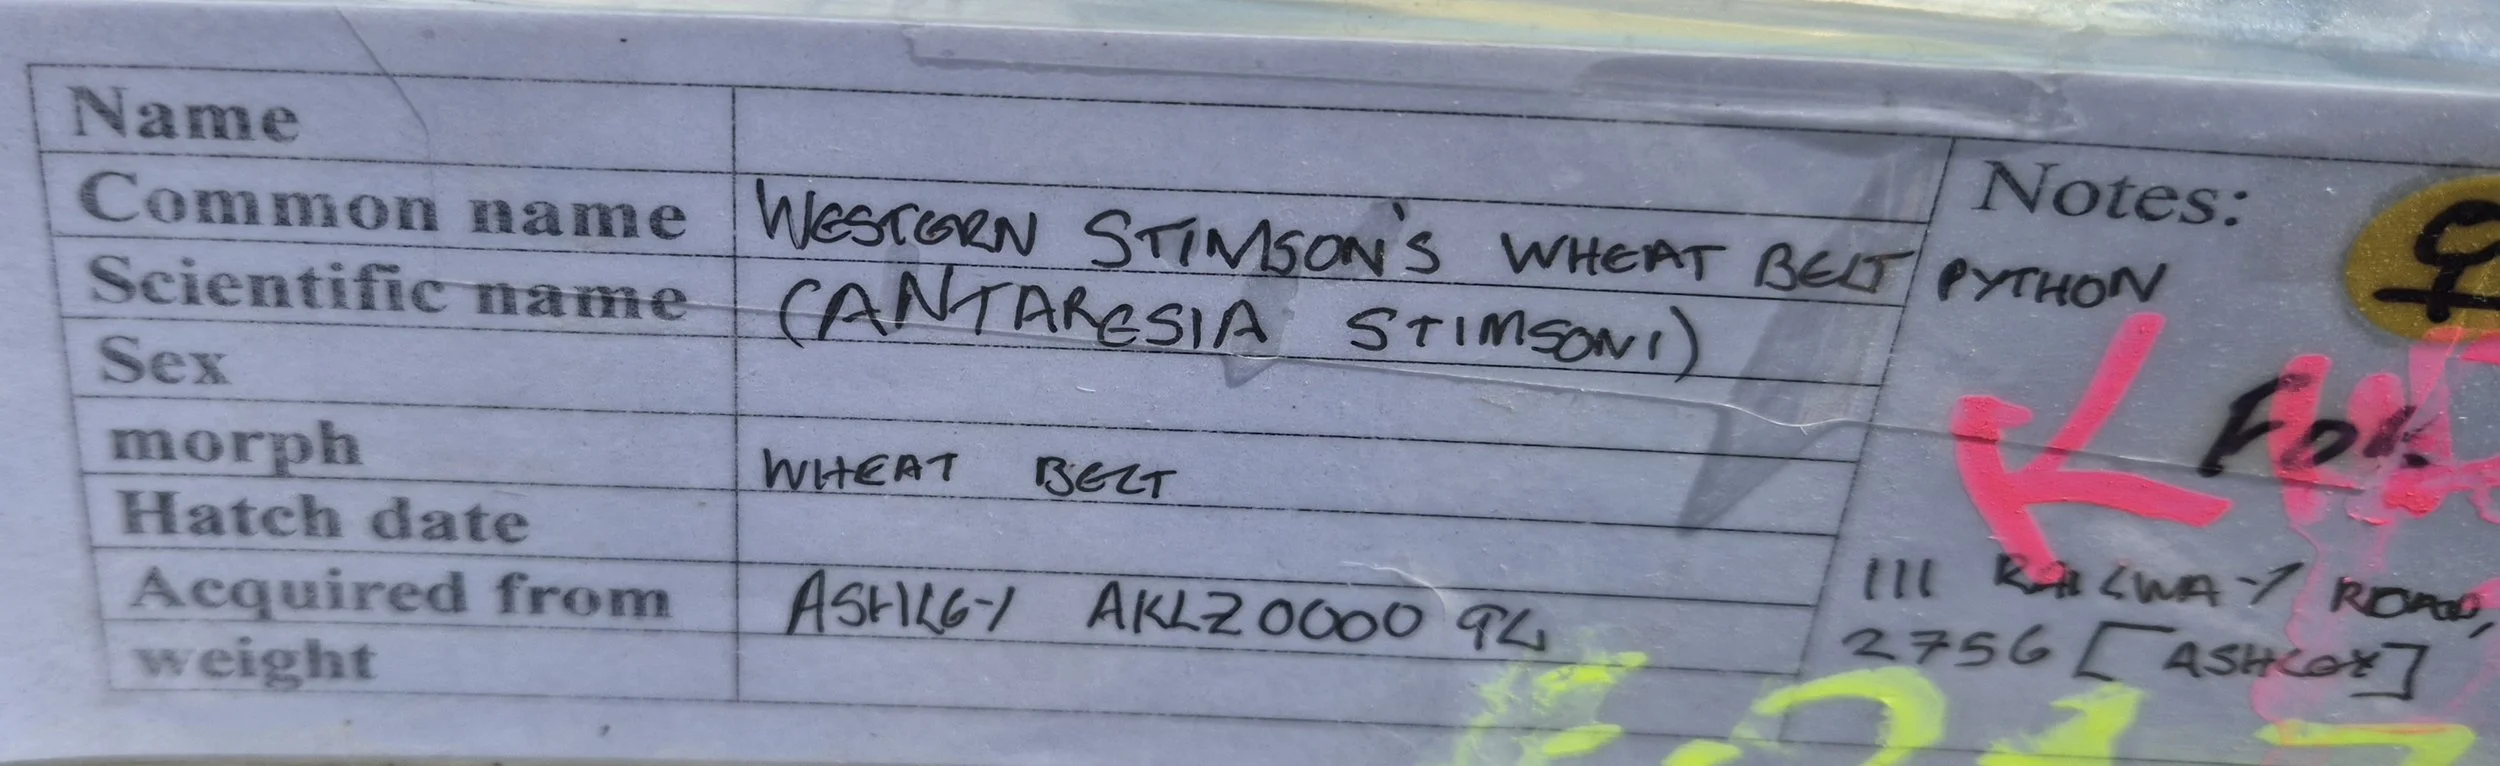 Name
Notes:
Common name WESTERN STIMSON'S WHEAT BELT PYTHON
Scientific name (ANTARESIA STIMSONI)
Sex
FOR
morph WHEAT BELT
Hatch date
111 RAILWAY ROAD,
Acquired from ASHLEY AKLZ0000 94
2756 [ASHLEY]
weight